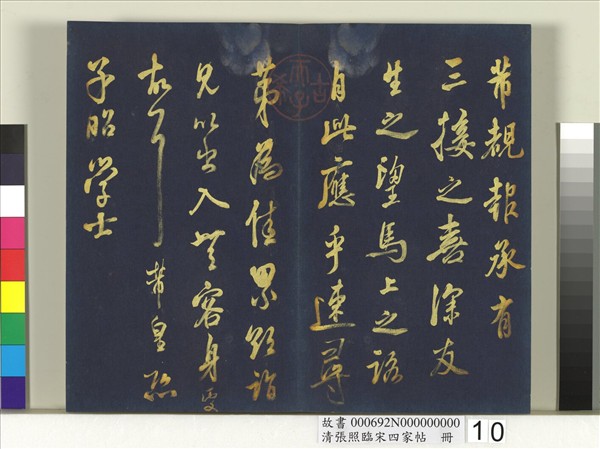 芾覩報承有
三接之喜深友
生之望馬上之詻
自此應乎速尋
第為佳累欲詣
見以出入無容身處
故耳芾皇恐
子昭學士
故書 000692N000000000
清張照臨宋四家帖 冊
10